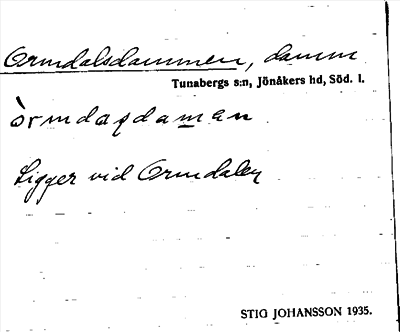 Ormdalsdammen, damm
Tunabergs s:n, Jönåkers hd, Söd. l.
òrmdaqdaman
Ligger vid Ormdalen
STIG JOHANSSON 1935.